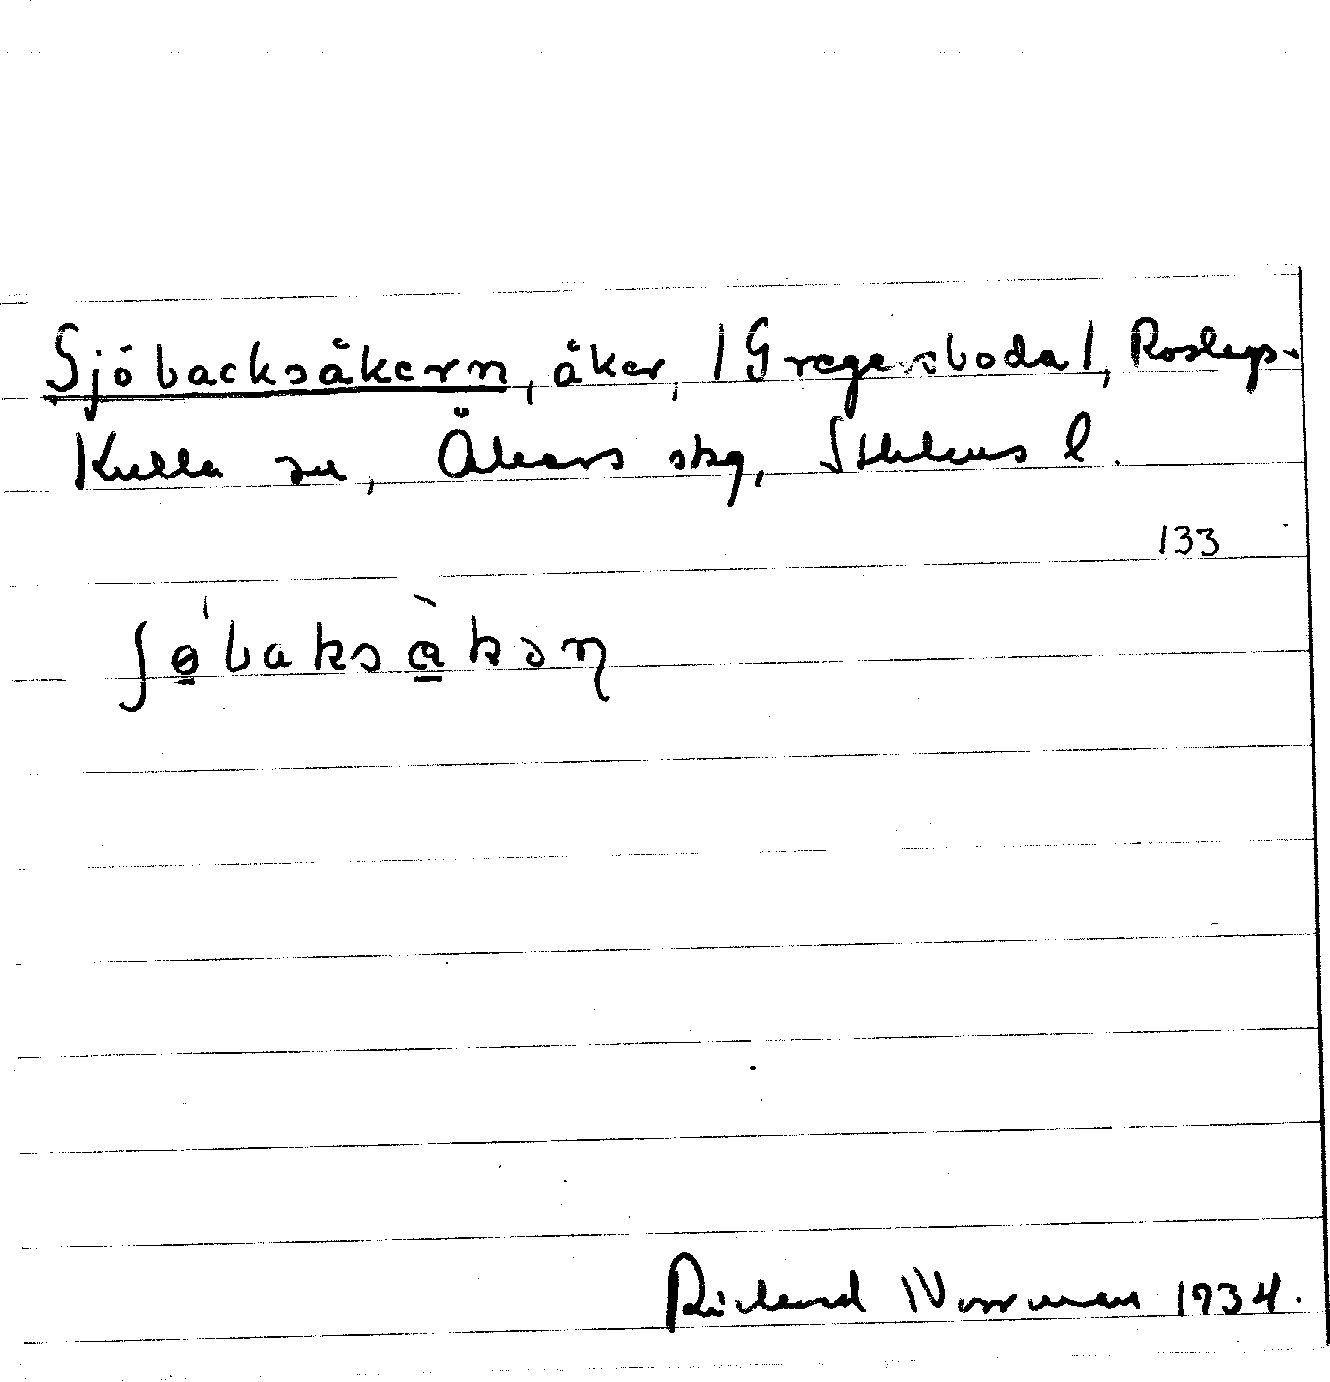 Sjöbacksåkern, åker, /Gregersboda/, Roslags-
Kulla sn, Åkers skg, Sthlms l.
133
ʃǿ̱baksà̱kəɳ
Richard Norrman 1934.